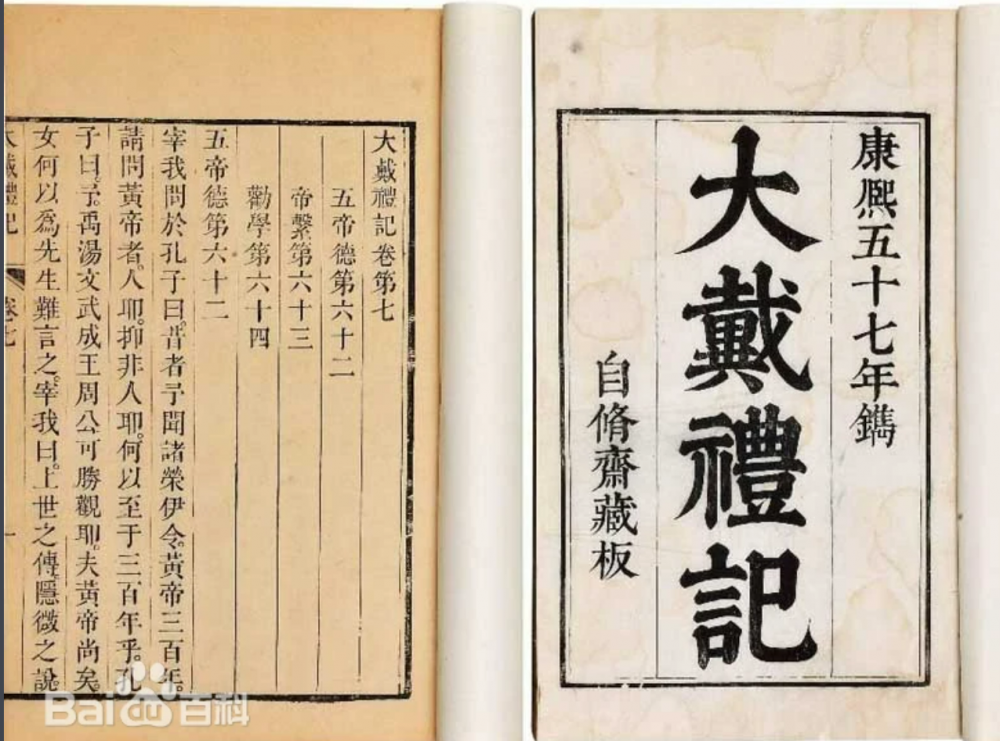 康熙五十七年鐫
大戴禮記
自脩齋藏板
大戴禮記卷第七
五帝德第六十二
帝繫第六十三
勸學第六十四
五帝德第六十二
宰我問於孔子曰。昔者予聞諸榮伊令。黃帝三百年。
請問黃帝者。人耶。抑非人耶。何以至于三百年乎。孔
子曰。予。禹湯文武成王周公可勝觀耶。夫黃帝尚矣。
女何以爲先生難言之。宰我曰。上世之傳。隱微之說。
大戴禮記 卷七 一
Baidu百科